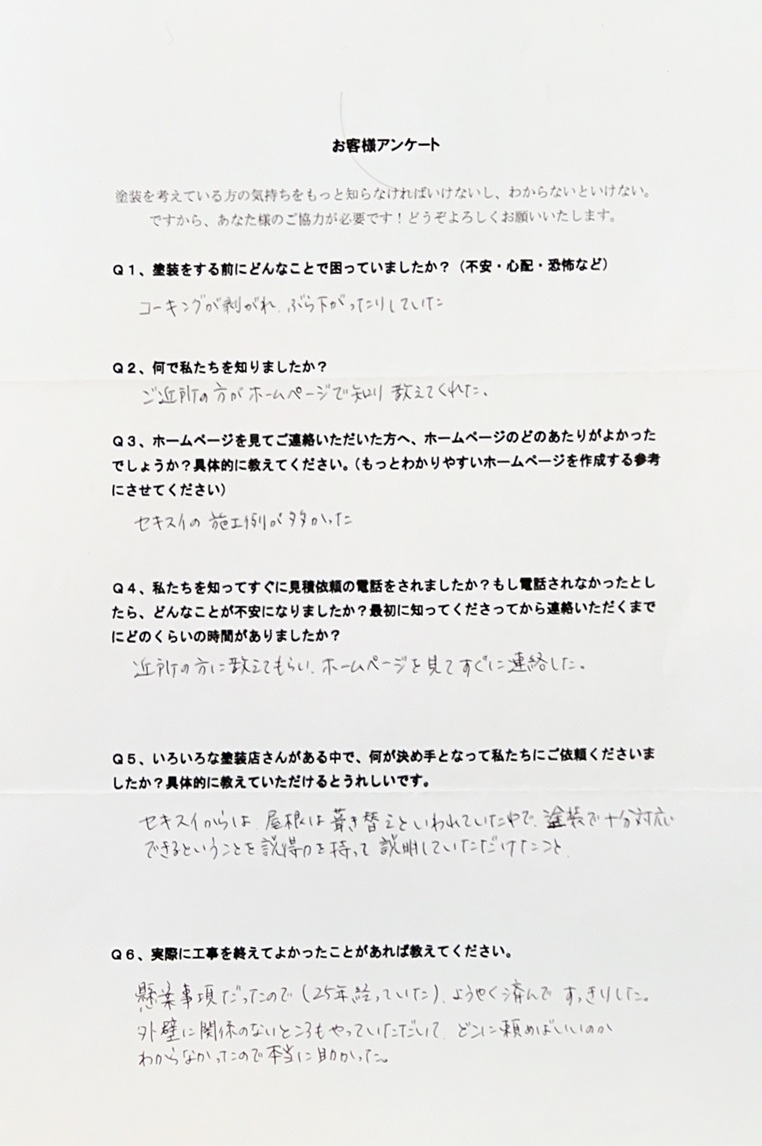 お客様アンケート
塗装を考えている方の気持ちをもっと知らなければいけないし、わからないといけない。
ですから、あなた様のご協力が必要です！どうぞよろしくお願いいたします。
Ｑ１、塗装をする前にどんなことで困っていましたか？（不安・心配・恐怖など）
コーキングが剥がれ、ぶら下がったりしていた
Ｑ２、何で私たちを知りましたか？
ご近所の方がホームページで知り教えてくれた。
Ｑ３、ホームページを見てご連絡いただいた方へ、ホームページのどのあたりがよかった
でしょうか？具体的に教えてください。（もっとわかりやすいホームページを作成する参考
にさせてください）
セキスイの施工例が多かった
Ｑ４、私たちを知ってすぐに見積依頼の電話をされましたか？もし電話されなかったとし
たら、どんなことが不安になりましたか？最初に知ってくださってから連絡いただくまで
にどのくらいの時間がありましたか？
近所の方に教えてもらい、ホームページを見てすぐに連絡した。
Ｑ５、いろいろな塗装店さんがある中で、何が決め手となって私たちにご依頼くださいま
したか？具体的に教えていただけるとうれしいです。
セキスイからは、屋根は葺き替えといわれていた中で、塗装で十分対応
できるということを説得力を持って説明していただけたこと
Ｑ６、実際に工事を終えてよかったことがあれば教えてください。
懸案事項だったので（25年経っていた）、ようやく済んですっきりした。
外壁に関係のないところもやっていただいて、どこに頼めばいいのか
わからなかったので本当に助かった。